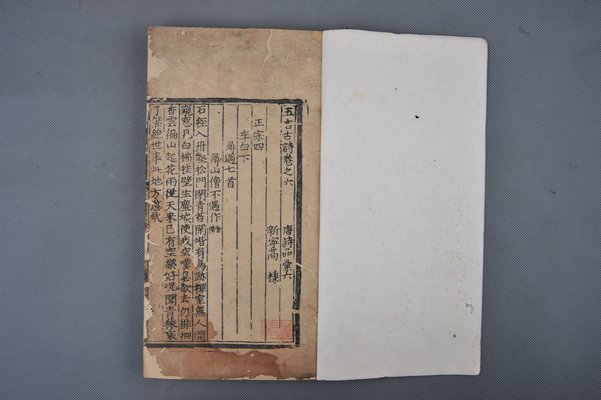 五言古詩卷之六 唐詩品彙六
新寧高棅
正宗四
李白下
尋遇七首
尋山僧不遇作
石徑入丹壑松門閉青苔閑堦有鳥跡禪室無人開
窺窓見白拂挂壁生塵埃使我空嘆息欲去仍徘徊
香雲徧山起花雨從天來已有空樂好况聞青猿哀
了然絕世事此地方悠哉